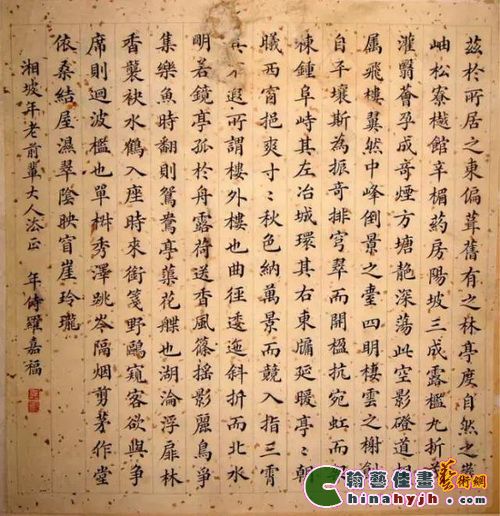 茲於所居之東偏葺舊有之林亭度自然之巖
岫松寮樾館辛楣藥房陽坡三成露檻九折
灌翳薈孕成奇煙方塘靘深蕩此空影磴道
属飛樓翼然中峰倒景之臺四明棲雲之榭
自平壤斯為振奇排穹翠而開楹抗宛虹而
棟鍾阜峙其左冶城環其右東牖延暖亭亭朝
曦西窗挹爽寸寸秋色納萬景而競入指三霄
不遐所謂樓外樓也曲徑逶迤斜折而北水
明若鏡亭孤於舟露荷送香風篠摇影麗鳥爭
集樂魚時翻則鴛鴦亭蕖花艓也湖淪浮扉林
香襲袂水鶴入座時來銜箋野鷗窺客欲與爭
席則迴波檻也單椒秀澤跳岑隔烟剪茅作堂
依桑結屋濕翠陰映窅崖玲瓏
湘坡年老前輩大人法正 年侍羅嘉福
翰藝佳畫藝術網
Chinahyjh.com